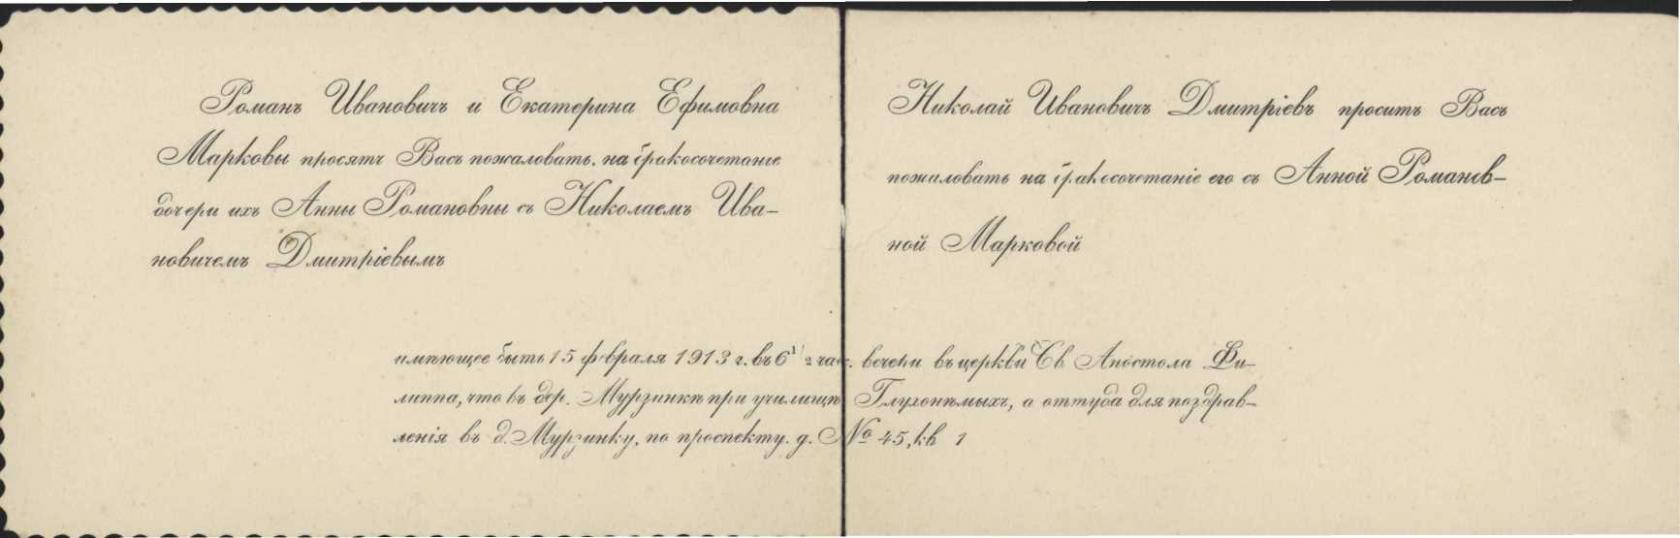 Романъ Ивановичъ и Екатерина Ефимовна
Марковы просятъ Васъ пожаловать на бракосочетаніе
дочери ихъ Анны Романовны съ Николаемъ Ива-
новичемъ Дмитріевымъ
Николай Ивановичъ Дмитріевъ проситъ Васъ
пожаловать на бракосочетаніе его съ Анной Романов-
ной Марковой
имѣющее быть 15 февраля 1913 г. въ 6 1/2 час. вечера въ церкви Св Апостола Фи-
липпа, что въ дер. Мурзинкѣ при училищѣ Глухонѣмыхъ, а оттуда для поздрав-
ленія въ д. Мурзинку, по проспекту. д. № 45, кв 1